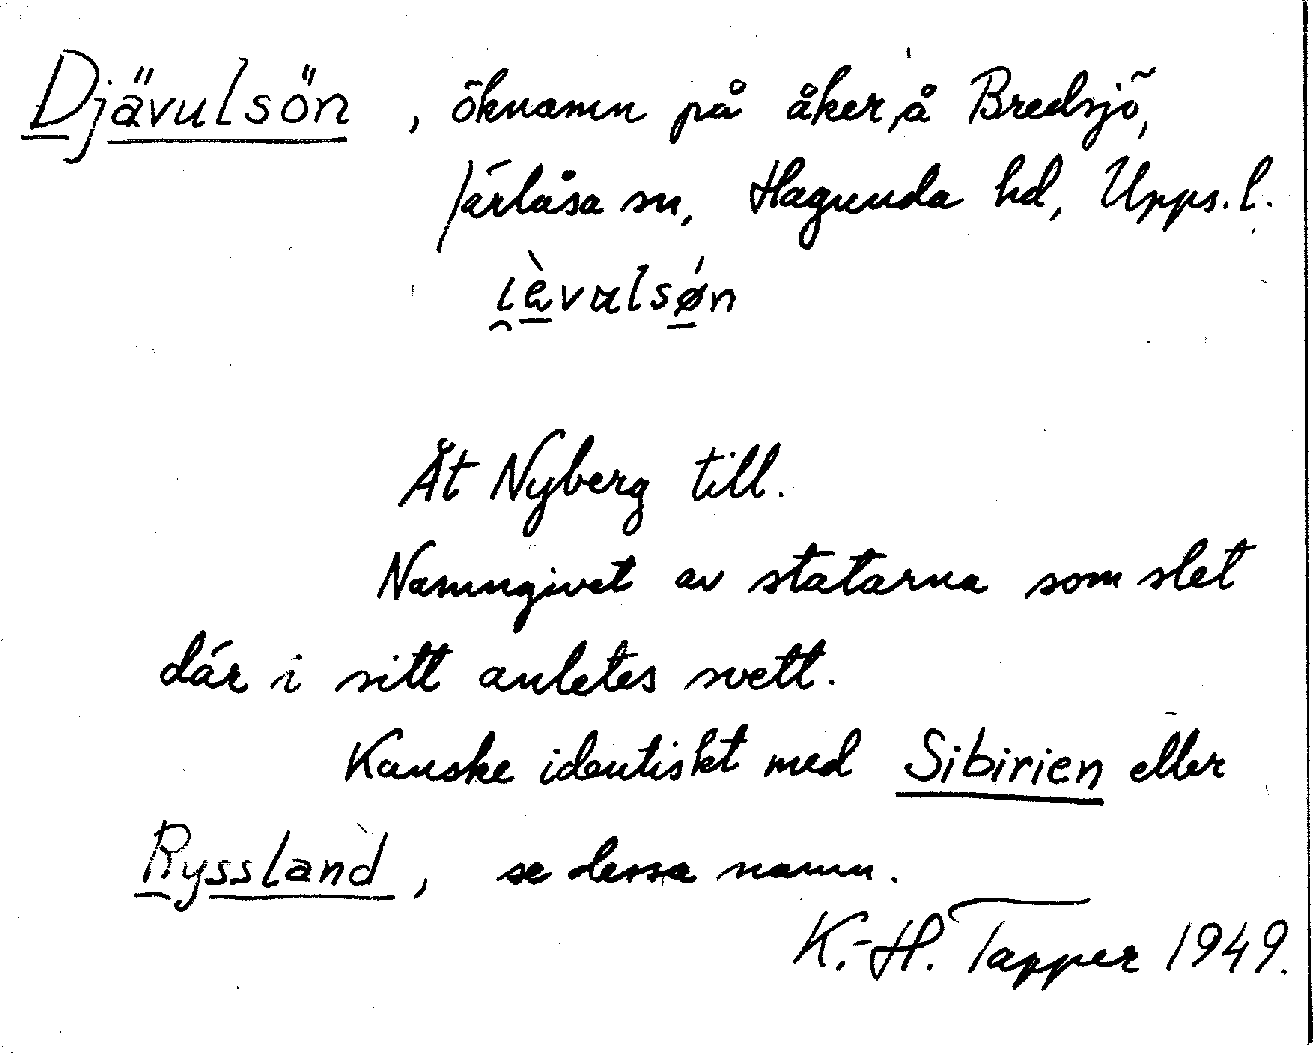 Djävulsön, öknamn på åker å Bredsjö,
Järlåsa sn, Hagunda hd, Upps. l.
Åt Nyberg till.
Namngivet av statarna som slet
där i sitt anletes svett.
Kanske identiskt med Sibirien eller
Ryssland, se dessa namn.
K.-H. Tapper 1949.